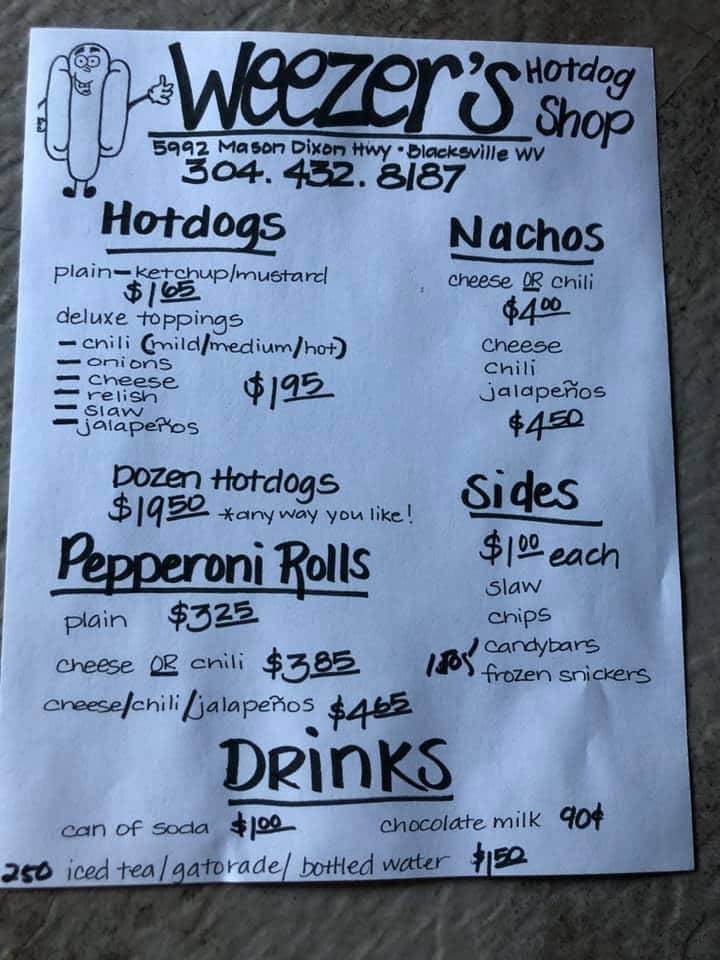 Weezer's Hotdog Shop
5992 Mason Dixon Hwy • Blacksville WV
304. 432. 8187
Hotdogs
plain - ketchup/mustard
$1.65
deluxe toppings
- chili (mild/medium/hot)
- onions
- cheese
- relish
- slaw
- jalapeños
$1.95
Dozen Hotdogs
$19.50 *any way you like!
Pepperoni Rolls
plain $3.25
cheese OR chili $3.85
cheese/chili/jalapeños $4.65
Nachos
cheese OR chili
$4.00
cheese
chili
jalapeños
$4.50
Sides
$1.00 each
slaw
chips
candybars
frozen snickers
DRINKS
can of soda $1.00
chocolate milk 90¢
250 iced tea/gatorade/bottled water $1.50